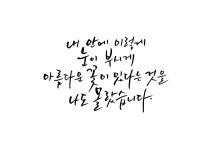 내 안에 이렇게
눈이 부시게
아름다운 꽃이 있다는 것을
나도 몰랐습니다.